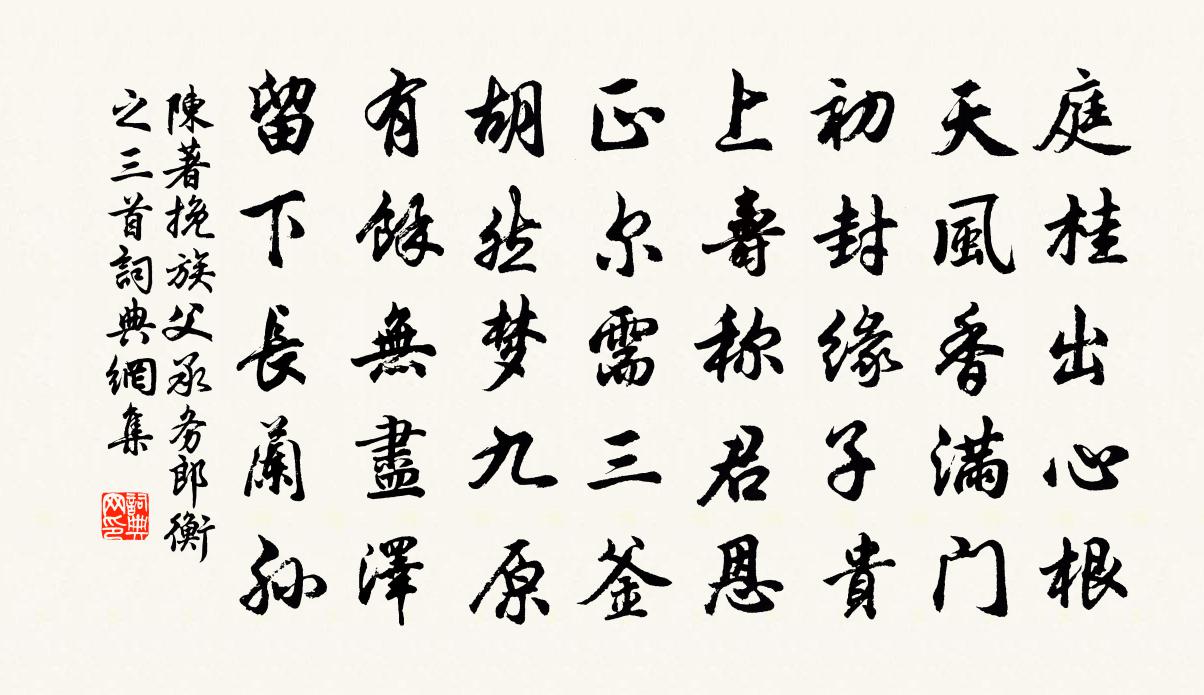 庭桂出心根
天風香满门
初封缘子貴
上壽称君恩
正尔需三釜
胡然梦九原
有餘無盡澤
留下長蘭孙
陳著挽族父承务郎衡
之三首詞典網集
詞典网印